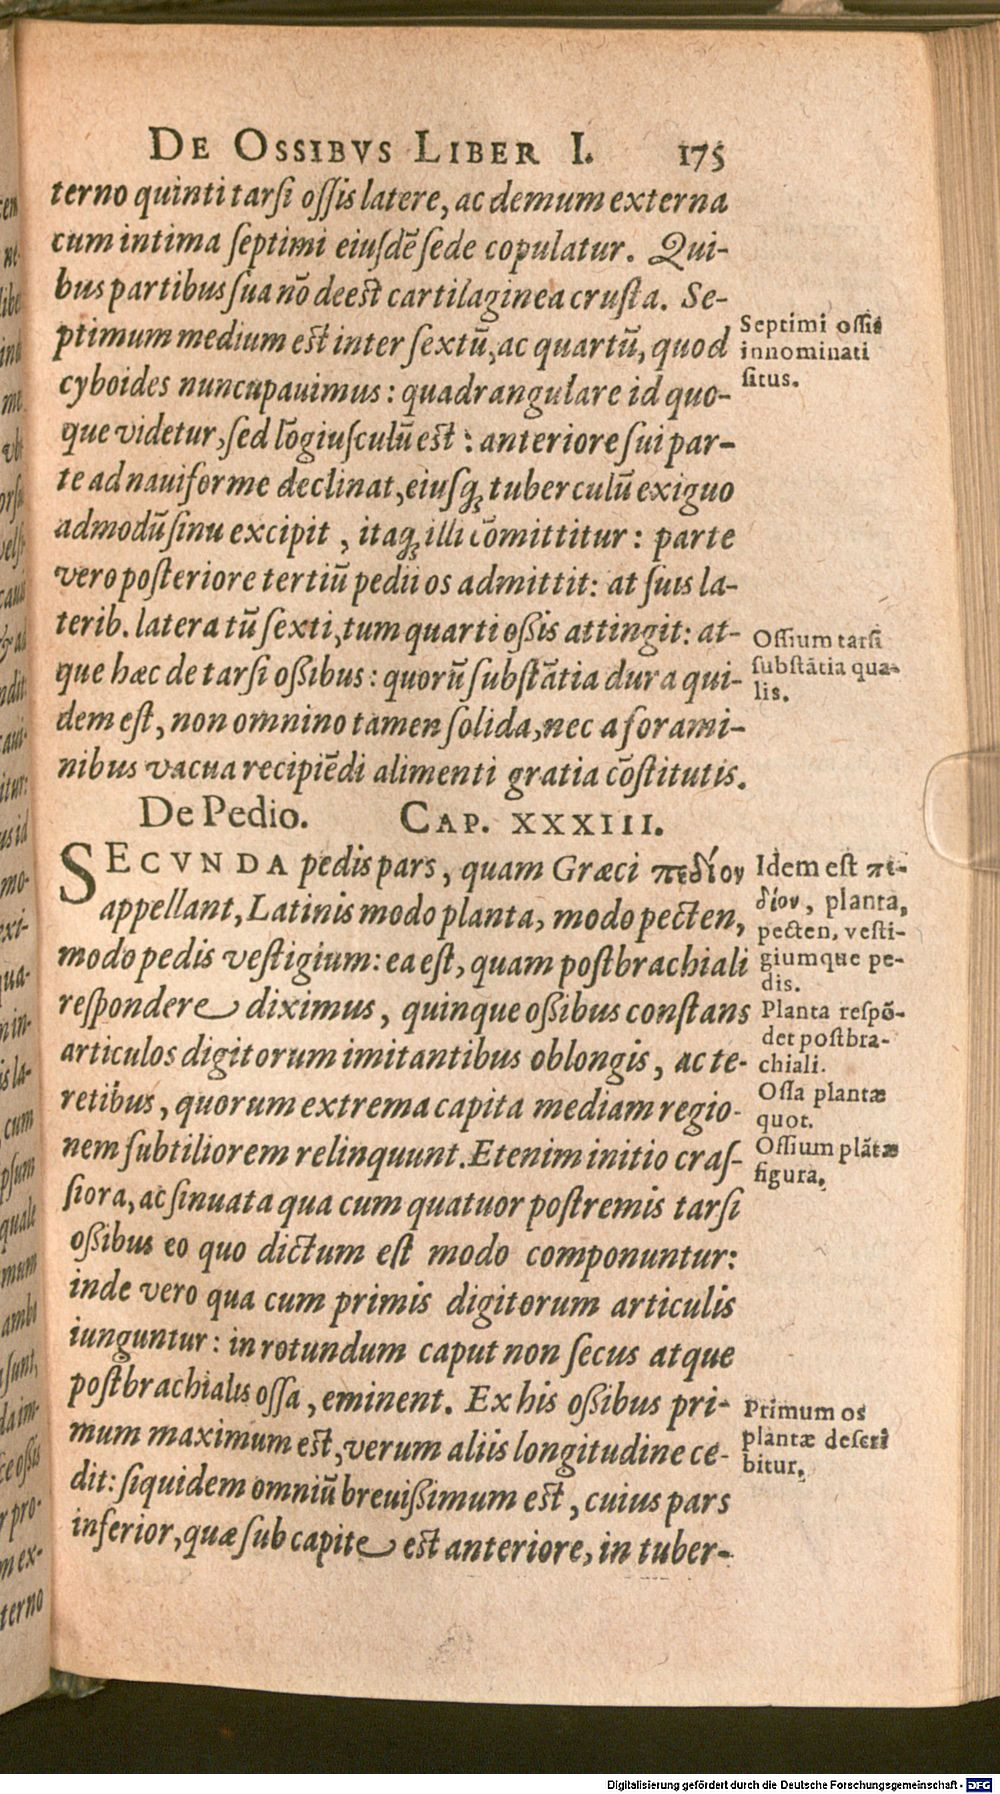 DE OSSIBVS LIBER I. 175
terno quinti tarſi oſſis latere, ac demum externa
cum intima ſeptimi eiuſdē ſede copulatur. Qui-
bus partibus ſua nō deest cartilaginea cruſta. Se-
ptimum medium est inter ſextū, ac quartū, quod
cyboides nuncupauimus: quadrangulare id quo-
que videtur, ſed lōgiuſculū est: anteriore ſui par-
te ad nauiforme declinat, eiuſq́ꝫ tuberculū exiguo
admodū ſinu excipit, itaqꝫ illi cōmittitur: parte
vero poſteriore tertiū pedii os admittit: at ſuis la-
terib. latera tū ſexti, tum quarti oßis attingit: at-
que hæc de tarſi oßibus: quorū ſubſtātia dura qui-
dem eſt, non omnino tamen ſolida, nec a forami-
nibus vacua recipiēdi alimenti gratia cōſtitutis.
Septimi oſſis
innominati
ſitus.
Oſſium tarſi
ſubſtātia qua-
lis.
De Pedio. CAP. XXXIII.
SECVNDA pedis pars, quam Græci πεδίον
appellant, Latinis modo planta, modo pecten,
modo pedis veſtigium: ea eſt, quam poſtbrachiali
reſpondere diximus, quinque oßibus conſtans
articulos digitorum imitantibus oblongis, ac te-
retibus, quorum extrema capita mediam regio-
nem ſubtiliorem relinquunt. Etenim initio craſ-
ſiora, ac ſinuata qua cum quatuor poſtremis tarſi
oßibus eo quo dictum eſt modo componuntur:
inde vero qua cum primis digitorum articulis
iunguntur: in rotundum caput non ſecus atque
poſtbrachialis oſſa, eminent. Ex his oßibus pri-
mum maximum est, verum aliis longitudine ce-
dit: ſiquidem omniū breuißimum est, cuius pars
inferior, quæ ſub capite est anteriore, in tuber-
Idem eſt πε-
δίον, planta,
pecten, veſti-
giumque pe-
dis.
Planta reſpō-
det poſtbra-
chiali.
Oſſa plantæ
quot.
Oſſium plātæ
figura.
Primum os
plantæ deſcri
bitur.
Digitalisierung gefördert durch die Deutsche Forschungsgemeinschaft - DFG